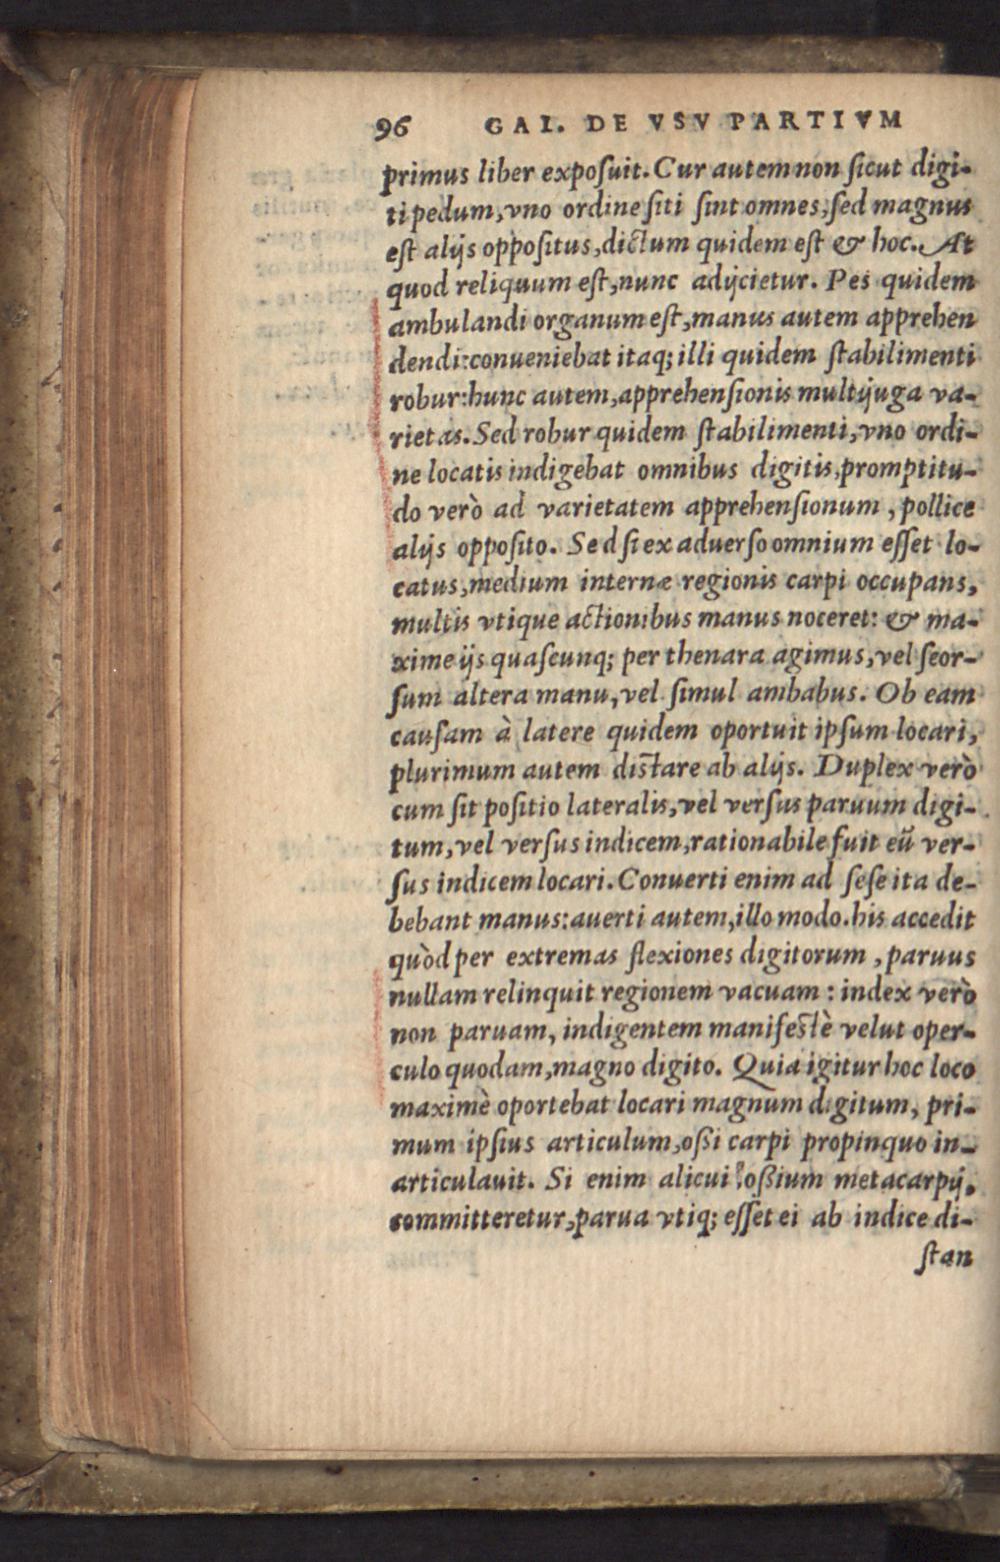 96 GAL. DE VSV PARTIVM
primus liber exposuit. Cur autem non sicut digi-
ti pedum, vno ordine siti sint omnes, sed magnus
est alijs oppositus, dictum quidem est & hoc. At
quod reliquum est, nunc adijcietur. Pes quidem
ambulandi organum est, manus autem apprehen
dendi: conueniebat itaq; illi quidem stabilimenti
robur: hunc autem, apprehensionis multijuga va-
rietas. Sed robur quidem stabilimenti, vno ordi-
ne locatis indigebat omnibus digitis, promptitu-
do verò ad varietatem apprehensionum, pollice
alijs opposito. Sed si ex aduerso omnium esset lo-
catus, medium internæ regionis carpi occupans,
multis vtique actionibus manus noceret: & ma-
xime ijs quascunq; per thenara agimus, vel seor-
sum altera manu, vel simul ambabus. Ob eam
causam à latere quidem oportuit ipsum locari,
plurimum autem distare ab alijs. Duplex verò
cum sit positio lateralis, vel versus paruum digi-
tum, vel versus indicem, rationabile fuit eũ ver-
sus indicem locari. Conuerti enim ad sese ita de-
bebant manus: auerti autem, illo modo. his accedit
quòd per extremas flexiones digitorum, paruus
nullam relinquit regionem vacuam: index verò
non paruam, indigentem manifestè velut oper-
culo quodam, magno digito. Quia igitur hoc loco
maximè oportebat locari magnum digitum, pri-
mum ipsius articulum, ossi carpi propinquo in-
articulauit. Si enim alicui ossium metacarpij,
committeretur, parua vtiq; esset ei ab indice di-
stan